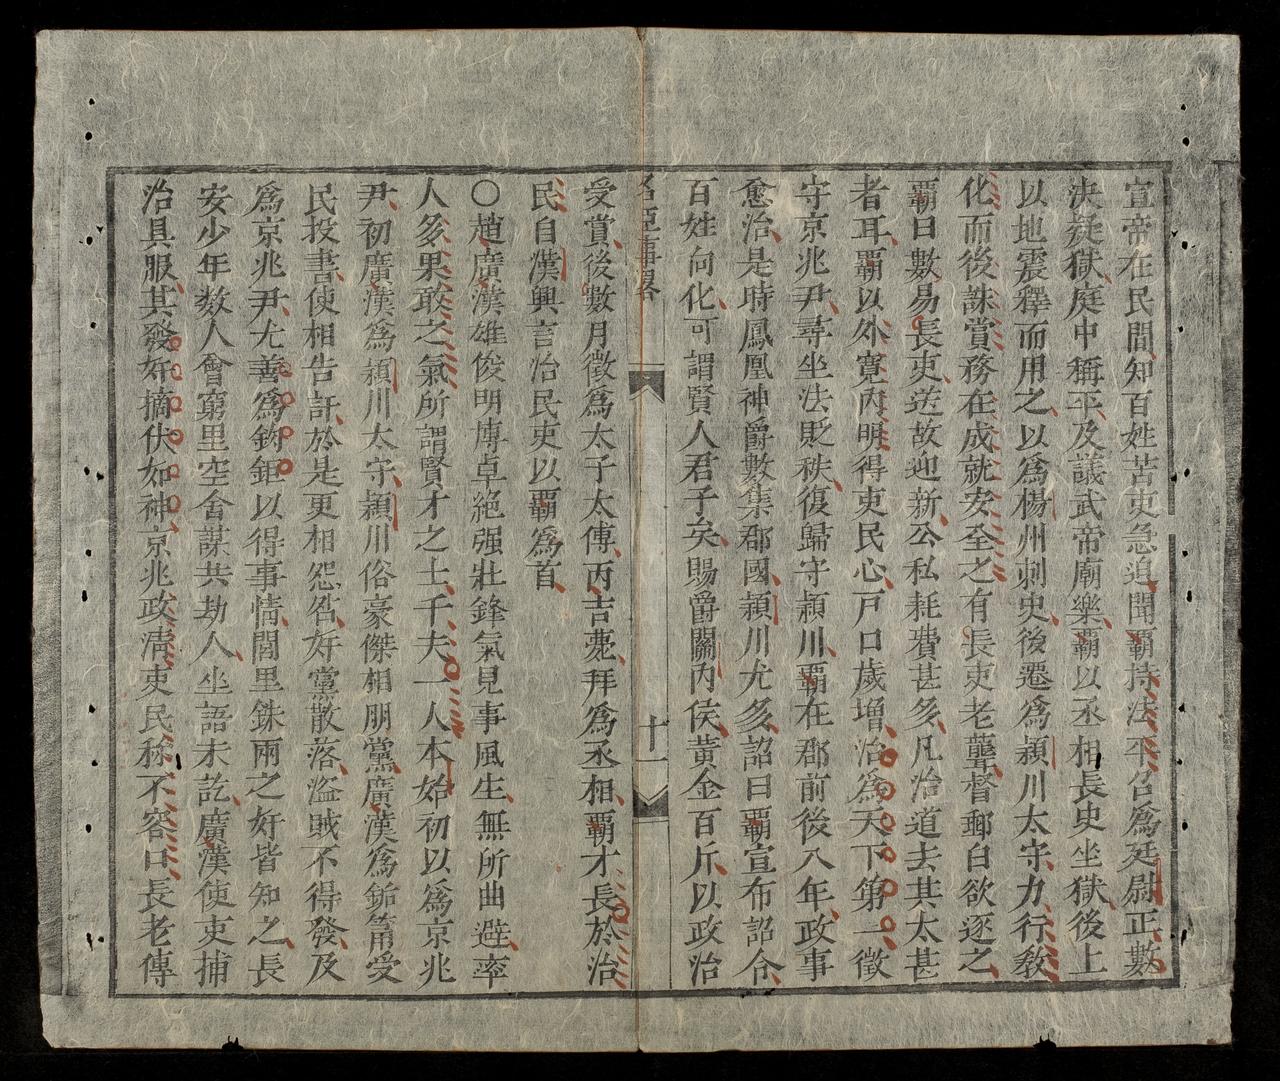 宣帝在民間知百姓苦吏急迫聞霸持法平召爲廷尉正數
決疑獄庭中稱平及議武帝廟樂霸以丞相長史坐獄後上
以地震釋而用之以爲楊州刺史後遷爲潁川太守力行敎
化而後誅賞務在成就安全之有長吏老聾督郵白欲逐之
霸曰數易長吏送故迎新公私耗費甚多凡治道去其太甚
者耳霸以外寬內明得吏民心戸口歲增治爲天下第一徵
守京兆尹尋坐法貶秩復歸守潁川霸在郡前後八年政事
愈治是時鳳凰神爵數集郡國潁川尤多詔曰霸宣布詔令
百姓向化可謂賢人君子矣賜爵關內侯黃金百斤以政治
名臣事畧 十一
受賞後數月徵爲太子太傅丙吉薨拜爲丞相霸才長於治
民自漢興言治民吏以霸爲首
〇趙廣漢雄俊明博卓絶强壯鋒氣見事風生無所曲避率
人多果敢之氣所謂賢才之士千夫一人本始初以爲京兆
尹初廣漢爲潁川太守潁川俗豪傑相朋黨廣漢爲缿筩受
民投書使相告訐於是更相怨咎奸黨散落盜賊不得發及
爲京兆尹尤善爲鉤鉅以得事情閭里銖兩之奸皆知之長
安少年数人會窮里空舍謀共劫人坐語未訖廣漢使吏捕
治具服其發奸摘伏如神京兆政淸吏民称不容口長老傳